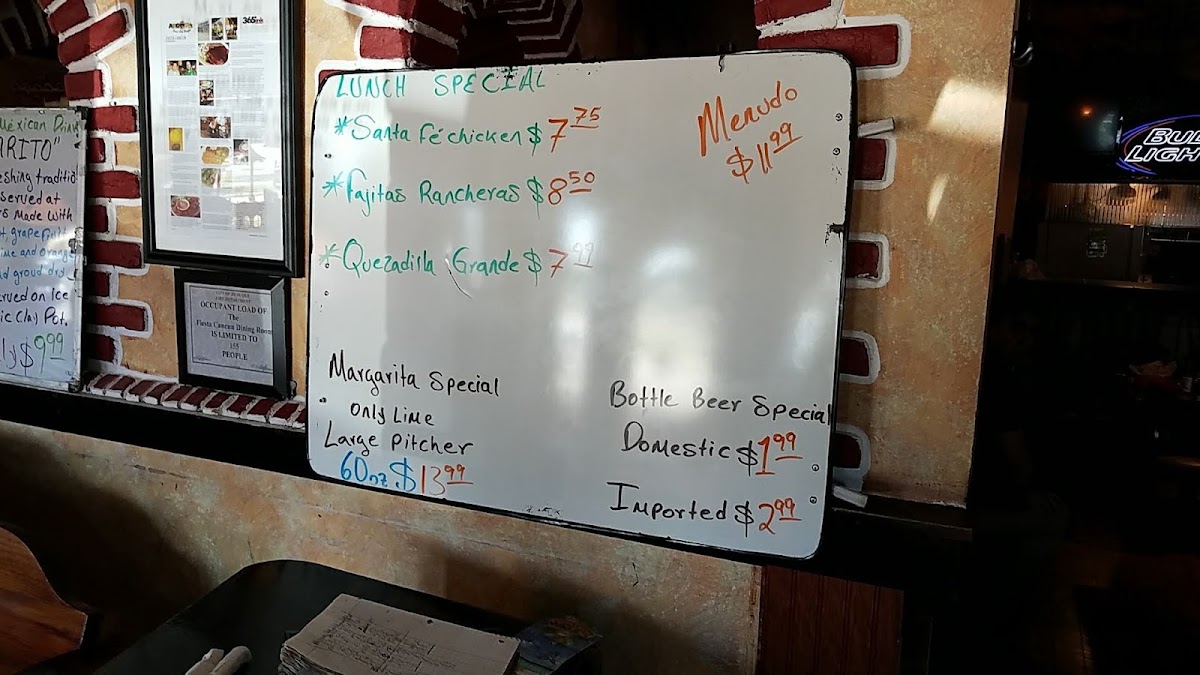 LUNCH SPECIAL
*Santa Fé chicken $7.75
*Fajitas Rancheras $8.50
*Quezadilla Grande $7.99
Menudo
$11.99
Margarita Special
Only Lime
Large Pitcher
60oz $13.99
Bottle Beer Special
Domestic $1.99
Imported $2.99
México Drin
ARITO"
eshing traditio
served at
s Made with
t, grapefruit
ime and orange
d groud dry
erved on Ice
ic Clay Pot.
ly $9.99
365ink
FIRE DEPARTMENT
OCCUPANT LOAD OF
The
Fiesta Cancun Dining Room
IS LIMITED TO
155
PEOPLE
BUD
LIGH